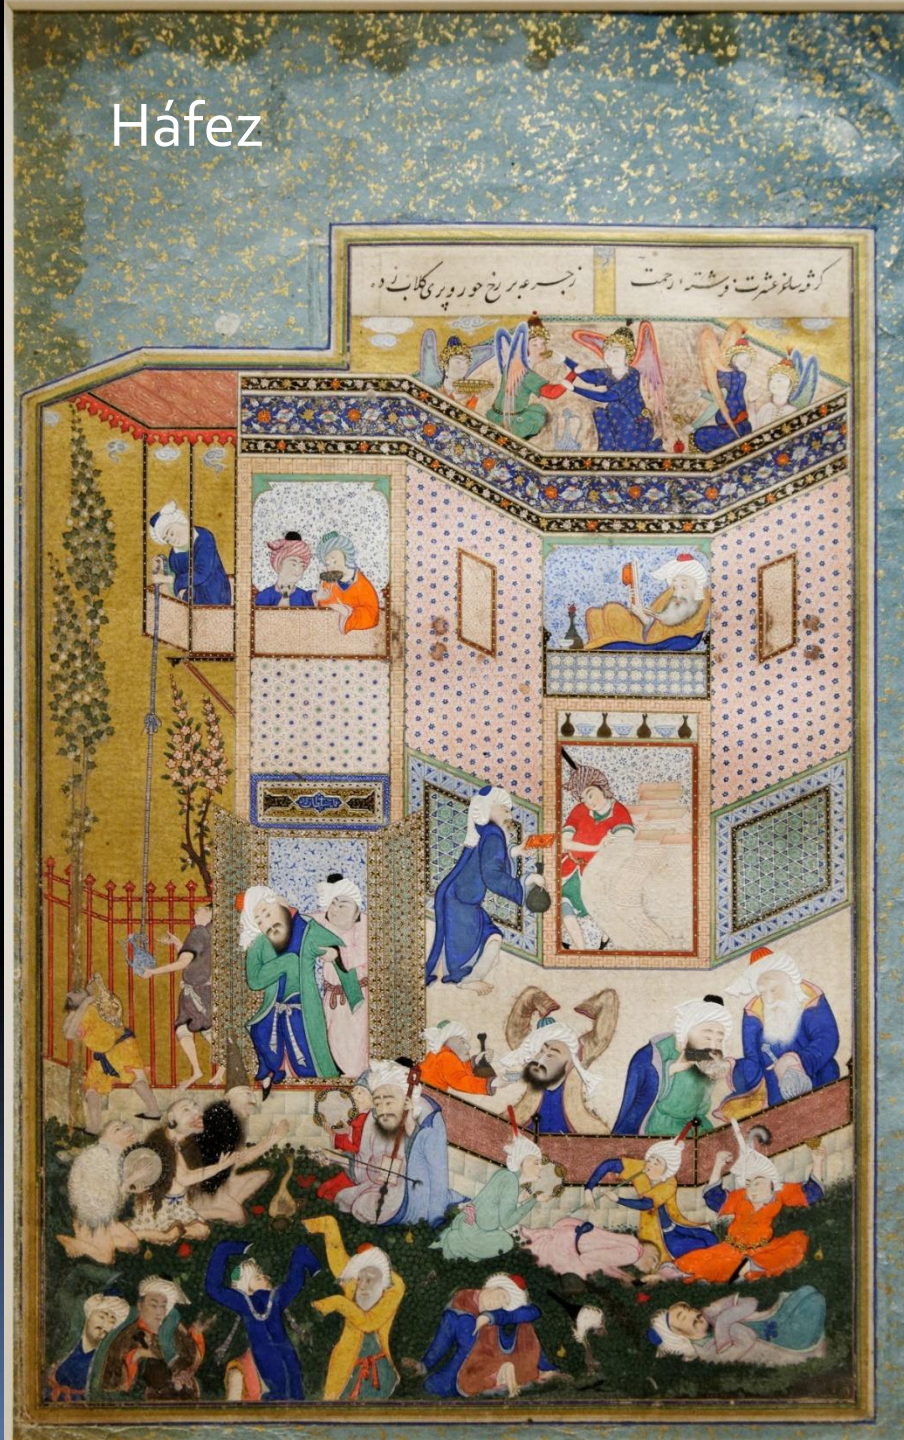 Háfez
گرفته ساغر عشرت فرشته رحمت
ز جرعه بر رخ حور و پری گلاب زده